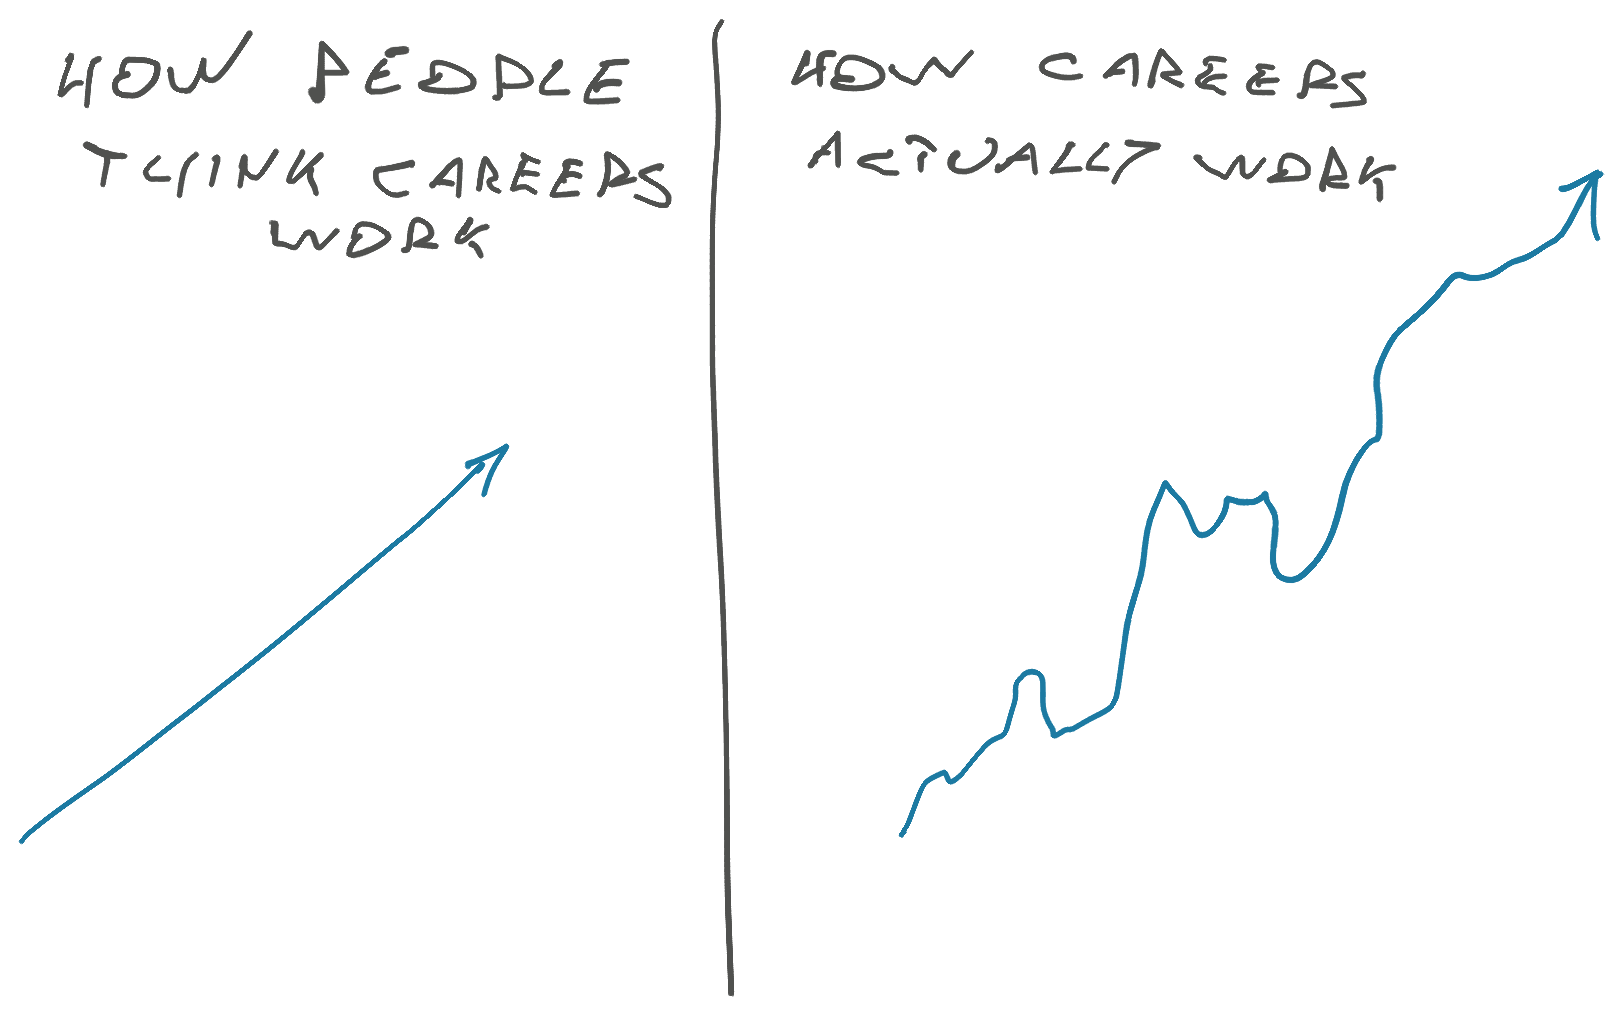 HOW PEOPLE
THINK CAREERS
WORK
HOW CAREERS
ACTUALLY WORK